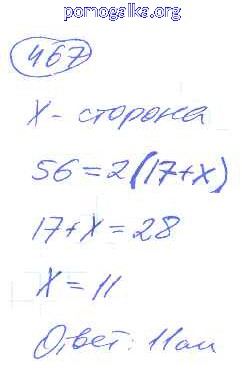 pomogalka.org
467
X - сторона
56 = 2(17+x)
17+x = 28
X = 11
Ответ: 11см